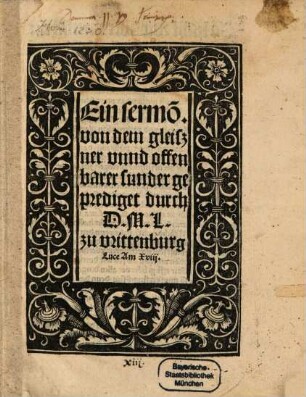 Ein sermō.
von dem gleisz
ner vnnd offen
barer sunder ge
prediget durch
D.M.L.
zu vvittenburg
Luce Am xviij.
xiij.
Bayerische
Staatsbibliothek
München